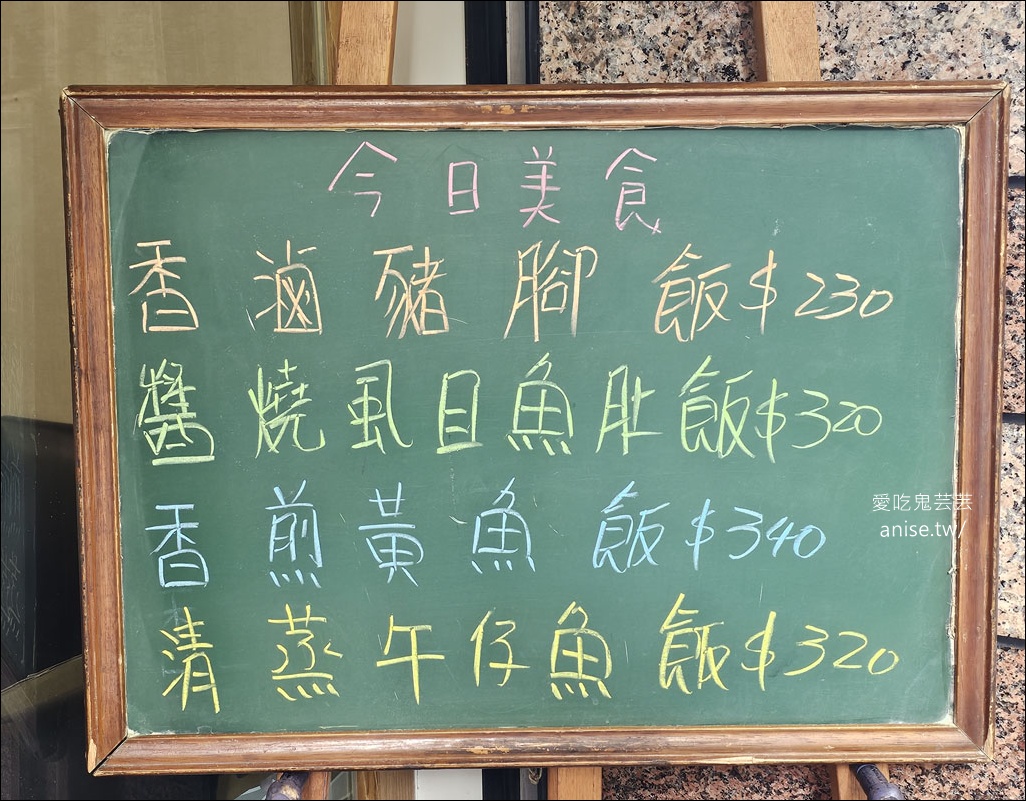 今日美食
香滷豬腳飯$230
醬燒虱目魚肚飯$320
香煎黃魚飯$340
清蒸午仔魚飯$320
愛吃鬼芸芸
anise.tw/